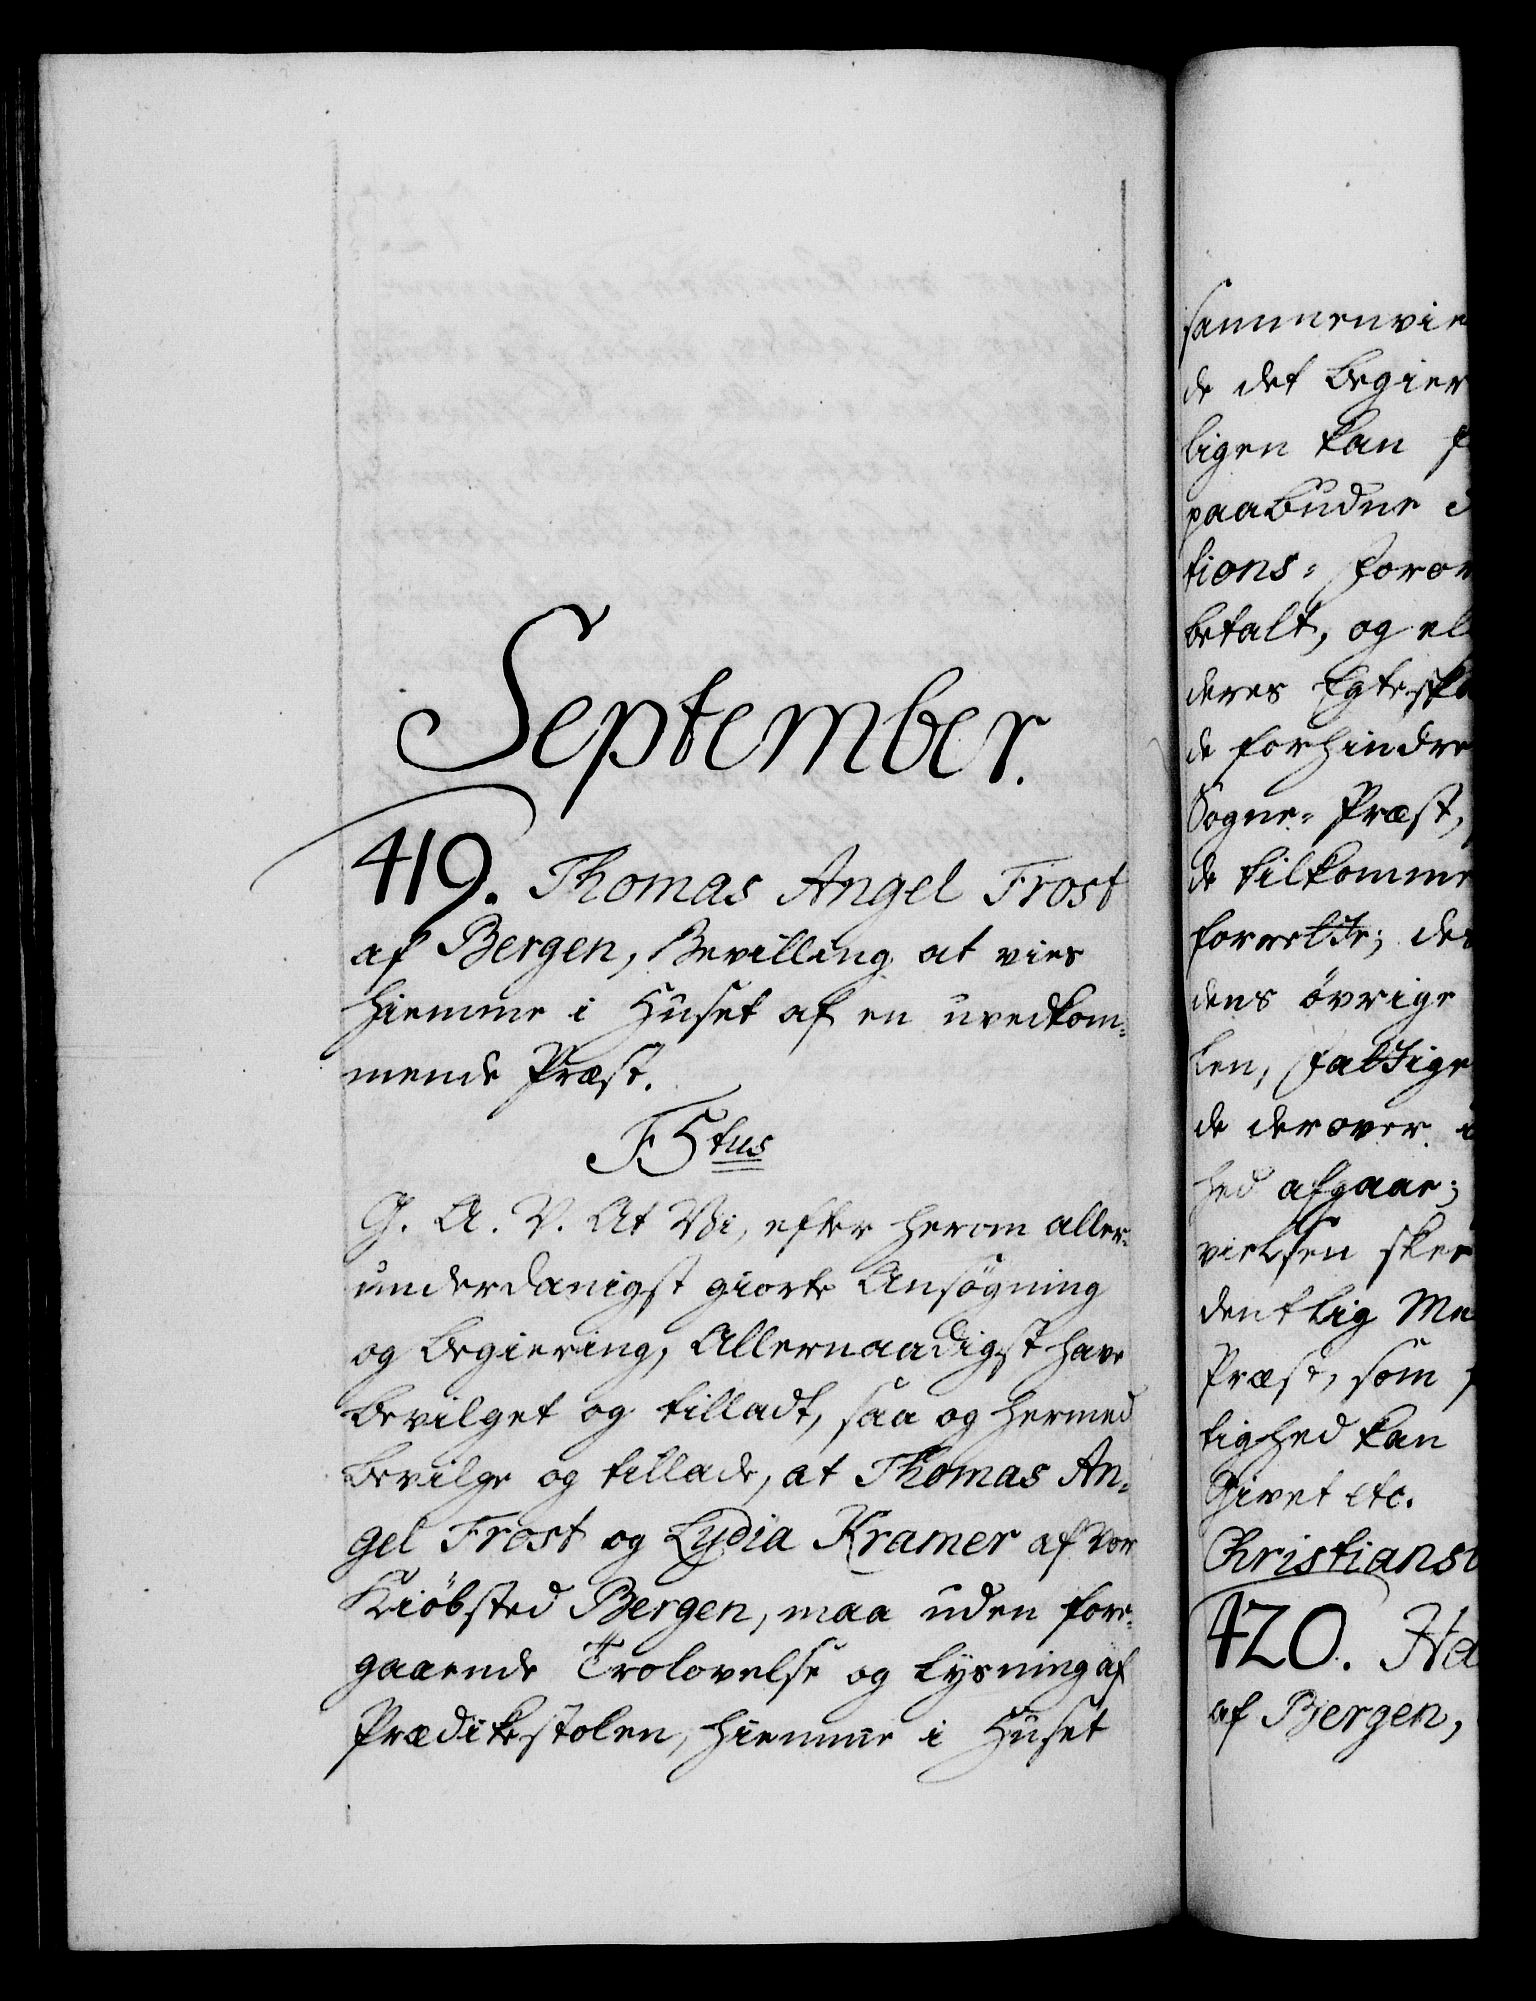 September.
419. Thomas Angel Frost
af Bergen, Bevilling at vies
hiemme i Huset af en uvedkom-
mende Præst.
F5tus
G. A. V. At Vi, efter herom aller-
underdanigst giorte Ansøgning
og Begiering, Allernaadigst have
bevilget og tilladt, saa og hermed
bevilge og tillade, at Thomas An-
gel Frost og Lydia Kramer af Vor
Kiöbsted Bergen, maa uden fore-
gaaende Trolovelse og Lysning af
Prædikestolen, hiemme i Huset
sammenvie
de det begier
ligen kan
paabudne
tions- Foror
betalt, og el
deres Egteska
de forhindre
Sogne- Præst,
de tilkomme
forrette; de
dens övrige
len, Fattige
de derover
hed afgaae;
vielsen skee
dentlig Me
Præst, som
tighed kan
Givet etc.
Christiansb
420. Ha
af Bergen,